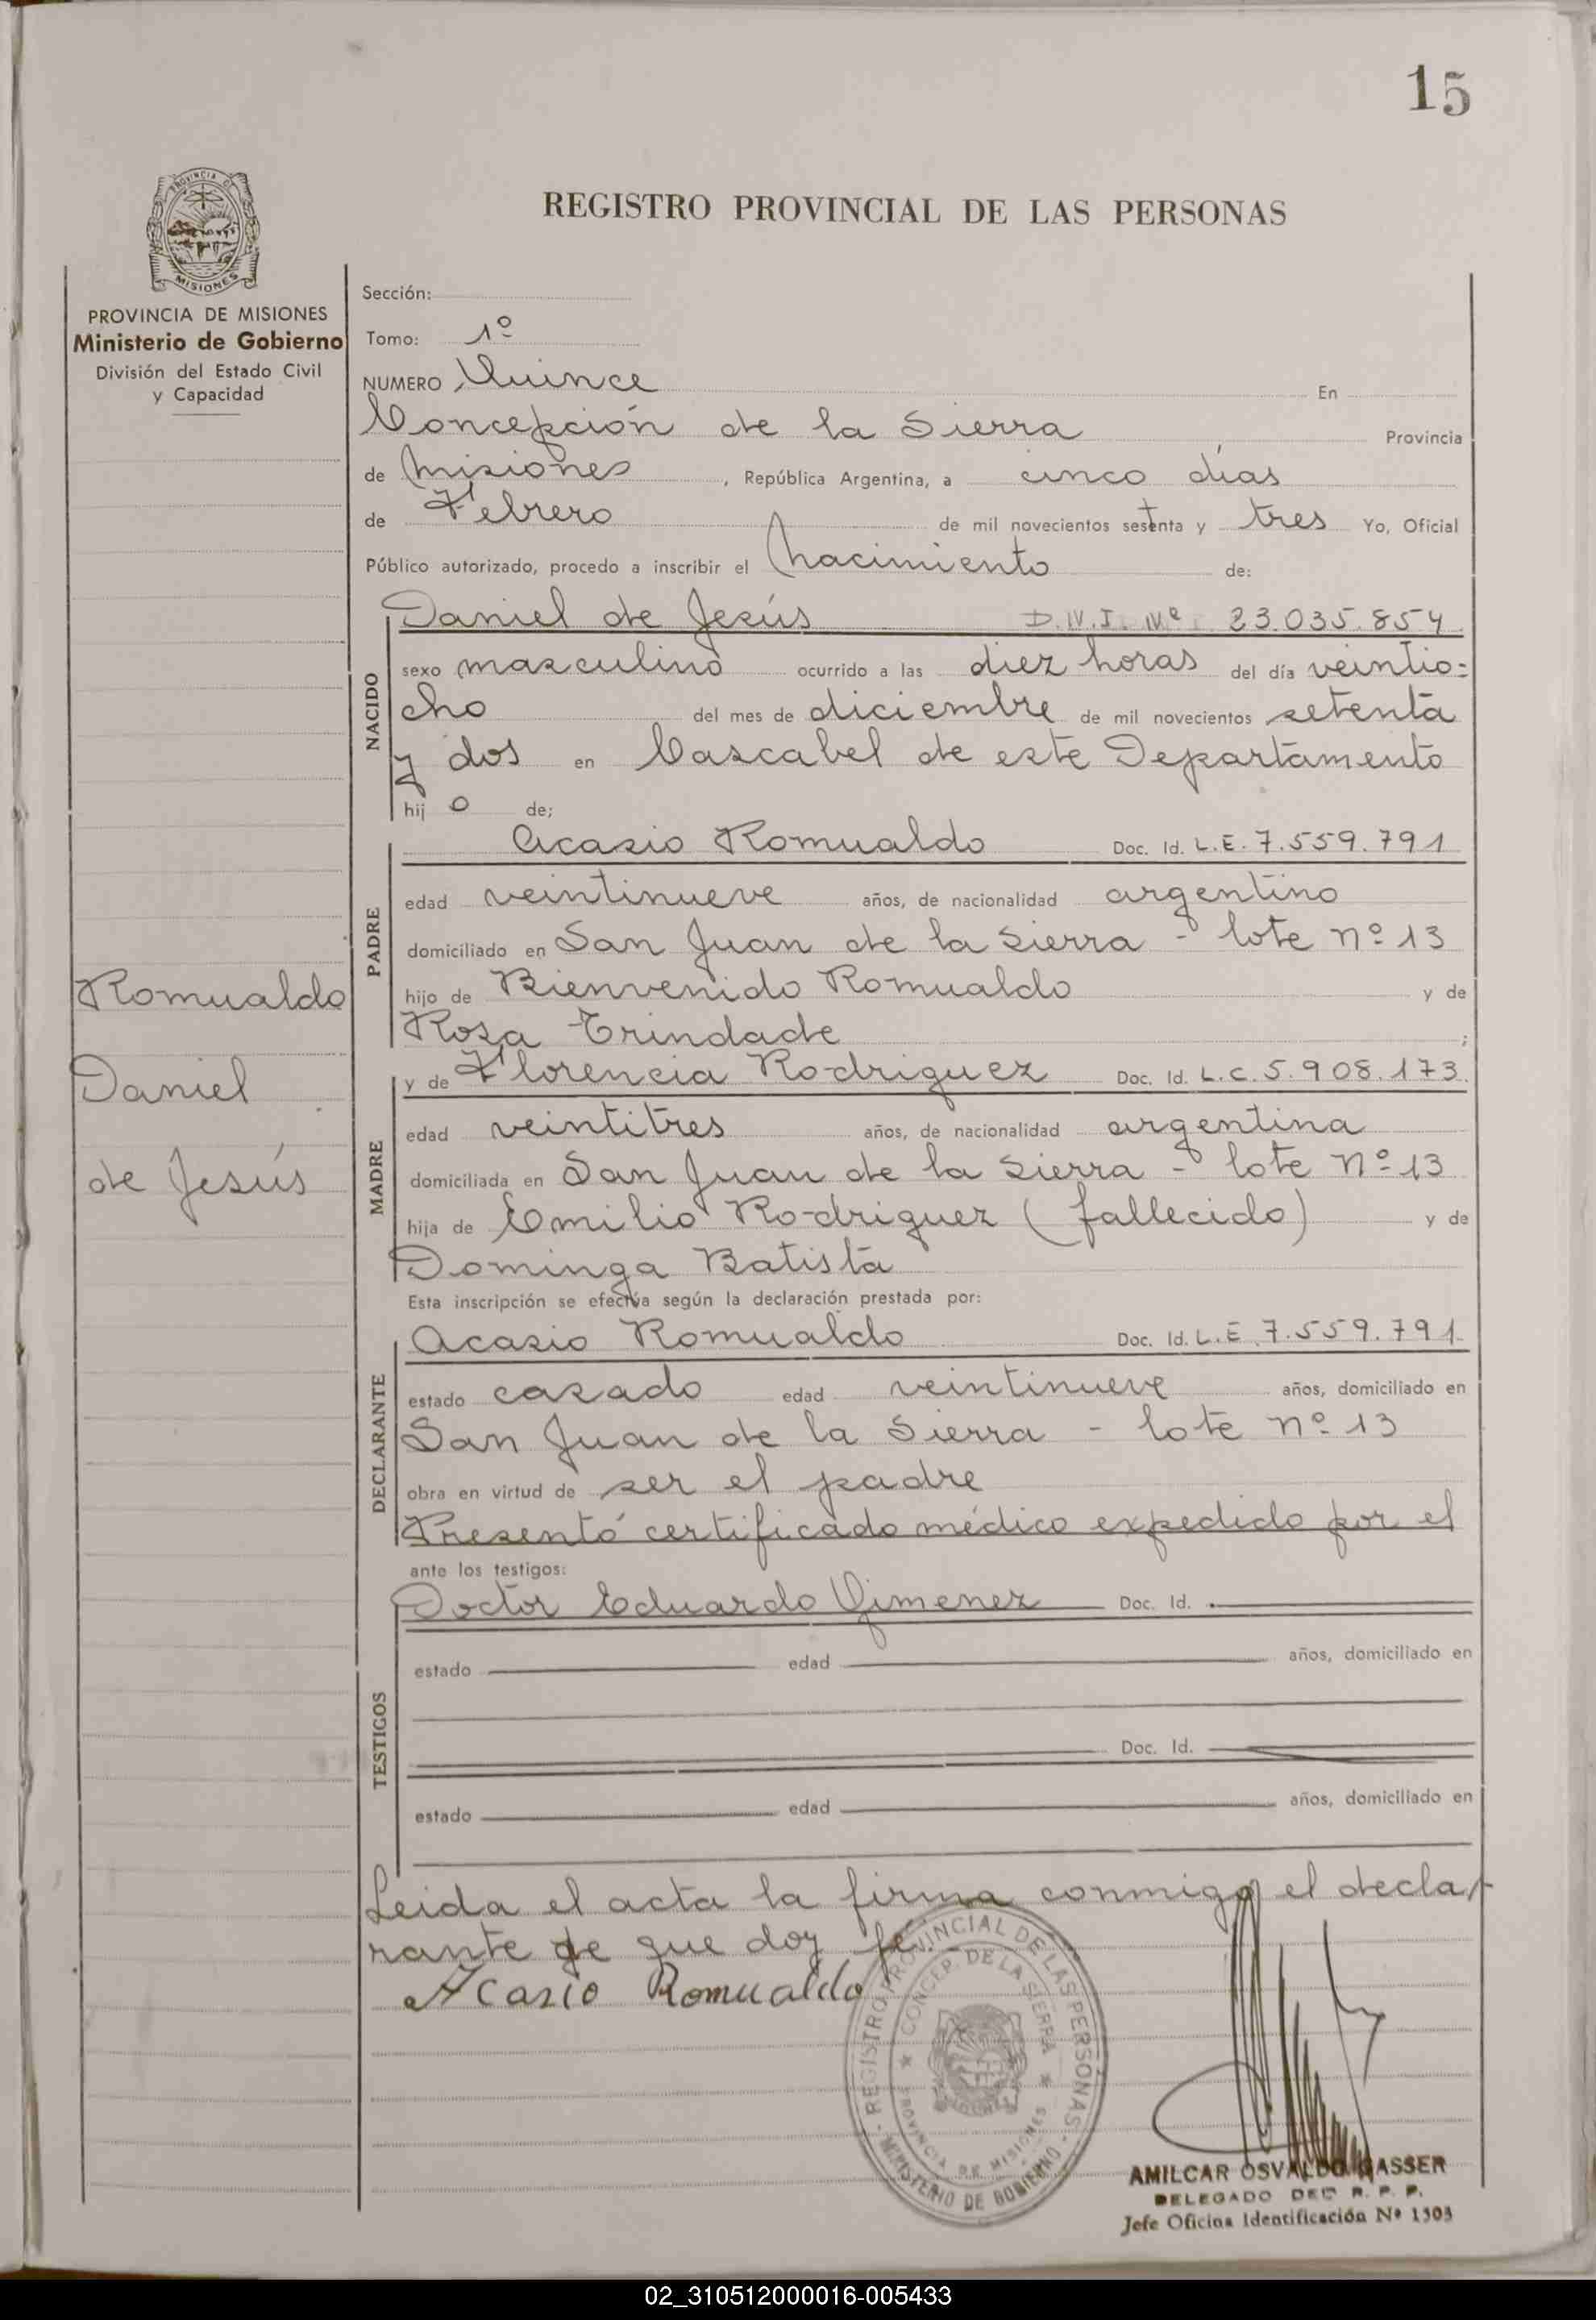 15
REGISTRO PROVINCIAL DE LAS PERSONAS
PROVINCIA DE MISIONES
PROVINCIA DE MISIONES
Ministerio de Gobierno
División del Estado Civil
y Capacidad
Romualdo
Daniel
de Jesús
Sección:
Tomo: 1º
NUMERO Quince En
Concepción de la Sierra Provincia
de Misiones, República Argentina, a cinco días
de Febrero de mil novecientos setenta y tres Yo, Oficial
Público autorizado, procedo a inscribir el Nacimiento de:
NACIDO
Daniel de Jesús D.N.I. Nº 23.035.854
sexo masculino ocurrido a las diez horas del día veintio=
cho del mes de diciembre de mil novecientos setenta
y dos en Cascabel de este Departamento
hijo de;
PADRE
Acasio Romualdo Doc. Id. L.E. 7.559.791
edad veintinueve años, de nacionalidad argentino
domiciliado en San Juan de la Sierra - lote nº 13
hijo de Bienvenido Romualdo y de
Rosa Trindade ;
MADRE
y de Florencia Rodriguez Doc. Id. L.C. 5.908.173
edad veintitres años, de nacionalidad argentina
domiciliada en San Juan de la Sierra - lote nº 13
hija de Emilio Rodriguez (fallecido) y de
Dominga Batista
Esta inscripción se efectúa según la declaración prestada por:
DECLARANTE
Acasio Romualdo Doc. Id. L.E 7.559.791
estado casado edad veintinueve años, domiciliado en
San Juan de la Sierra - lote nº 13
obra en virtud de ser el padre
Presentó certificado médico expedido por el
ante los testigos:
TESTIGOS
Doctor Eduardo Gimenez Doc. Id.
estado edad años, domiciliado en
Doc. Id.
estado edad años, domiciliado en
Leida el acta la firma conmigo el decla-
rante de que doy fé.
Acasio Romualdo
REGISTRO PROVINCIAL DE LAS PERSONAS
CONCEP. DE LA SIERRA
PROVINCIA DE MISIONES
MINISTERIO DE GOBIERNO
AMILCAR OSVALDO GASSER
DELEGADO DEL R. P. P.
Jefe Oficina Identificación Nº 1303
02_310512000016-005433